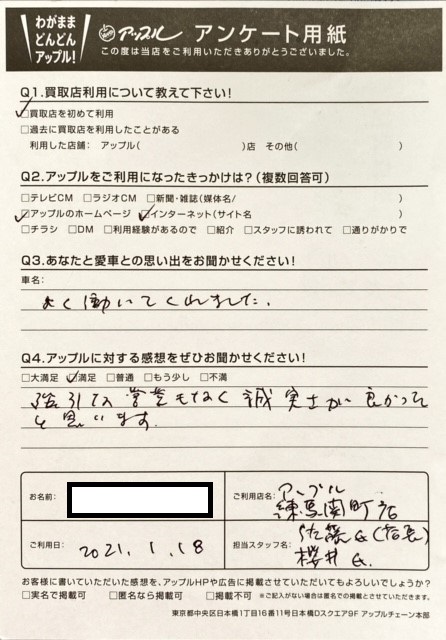 わがまま
どんどん
アップル!
アップル アンケート用紙
この度は当店をご利用いただきありがとうございました。
Q1.買取店利用について教えて下さい!
☑買取店を初めて利用
□過去に買取店を利用したことがある
利用した店舗: アップル( )店 その他( )
Q2.アップルをご利用になったきっかけは?(複数回答可)
□テレビCM □ラジオCM □新聞・雑誌(媒体名/ )
☑アップルのホームページ ☑インターネット(サイト名 )
□チラシ □DM □利用経験があるので □紹介 □スタッフに誘われて □通りがかりで
Q3.あなたと愛車との思い出をお聞かせください!
車名:
よく働いてくれました.
Q4.アップルに対する感想をぜひお聞かせください!
□大満足 ☑満足 □普通 □もう少し □不満
強引な営業もなく誠実さが良かって
と思います.
お名前:
ご利用店名: アップル
練馬関町店
ご利用日: 2021.1.18
担当スタッフ名: 佐藤氏(店長)
桜井氏.
お客様に書いていただいた感想を、アップルHPや広告に掲載させていただいてもよろしいでしょうか?
□実名で掲載可 □匿名なら掲載可 □掲載不可 ※ご記入がない場合は匿名での掲載とさせていただきます。
東京都中央区日本橋1丁目16番11号日本橋Dスクエア9F アップルチェーン本部